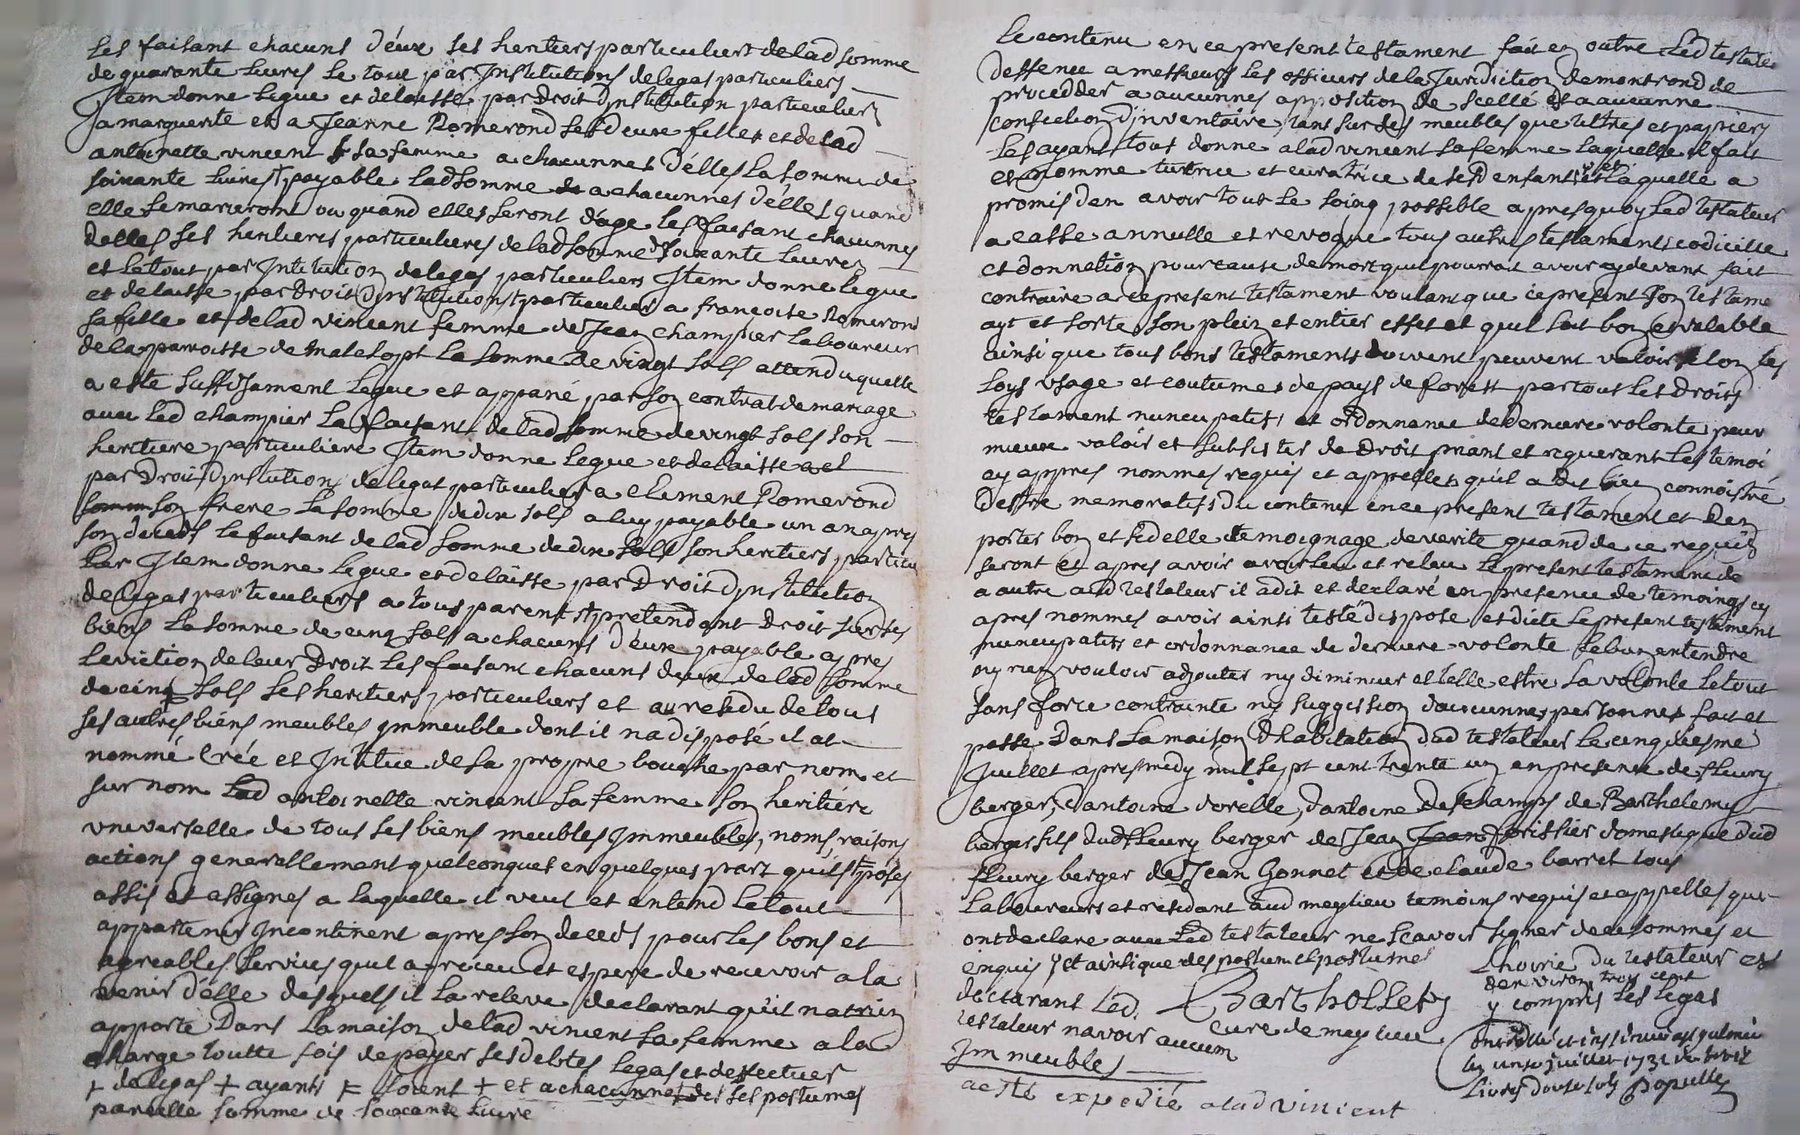 les faisant chacuns d'éux ses heritiers particuliers de lad somme
de quarante livres le tout par Institutions de legas particuliers
Item donne legue et delaisse par droit dinstitution particulier
a marguerite et a Jeanne Romerond ses deux filles et de lad
antoinette vincent sa femme a chacunnes d'élles la somme de
soixante livres + payable lad somme a chacunnes d'élles quand
elle se marieront ou quand elles seront d'age les faisant chacunnes
delles ses heritieres particulieres de lad somme de soixante livres
et le tout par Intitution de legas particuliers Item donne legue
et delaisse par droit dinstitution + particulier a francoise Romerond
sa fille et de lad vincent femme de Jean champier laboureur
de la parroisse de la somme de vingt sols attendu quelle
a esté suffisament legué et appané par son contrat de mariage
avec led champier la faisant de lad somme de vingt sols son
heritiere particuliere Item donne legue et delaisse
par droit dinstitution de legat particulier a clement Romerond
son frere la somme de dix sols a luy payable un an apres
son deceds le faisant de lad somme de dix sols son heritiers particu
lier Item donne legue et delaisse par droit dinstitution
de legas particuliers a tous parents + pretendant droit sur ses
biens la somme de cinq sols a chacuns d'éux payable apres
leviction de leur droit les faisant chacuns deux de lad somme
de cinq sols ses heritiers particuliers et au residu de tous
ses autres biens meubles immeuble dont il na disposé il at
nommé Créé et Intitue de sa propre bouche par nom et
sur nom lad antoinette vincent sa femme son heritiére
vniverselle de tous ses biens meubles Immeubles, noms, raisons
actions generallement quelconques en quelques part quils posés
assis et assignes a laquelle il veut et entend le tout
appartenir Incontinent apres son deceds pour les bons et
agreables services quil a receu et espere de recevoir a la
venir d'élle desquels il la releve declarant qu'il na rien
apporte dans la maison de lad vincent sa femme a la
charge toutte fois de payer ses debtes legas et deffectuer
+ de legas + ayants soient + et a chacunnes des ses postumes
pareille somme de soixante livre
le contenu en ce present testament fait en outre led testate
deffence a messieurs les officiers de la Juridiction de montrond de
procedder a aucunnes apposition de scellé et a aucunne
confection d'inventaire tant sur ses meubles que tiltres et papiers
les ayant tout donne a lad vincent sa femme laquelle il fait
et nomme tutrice et curatrice de sesd enfants laquelle a
promis den avoir tout le soing possible apres quoy led testateur
a casse annulle et revoque tous autres testaments codicille
et donnation pour cause de mort quil pourroit avoir cy devant fait
contraire a ce present testament voulant que ce present son testame
ayt et sorte son plein et entier effet et quil soit bon et valable
ainsi que tous bons testaments doivent peuvent valoir selon les
loys vsage et coutumes de pays de forest par tous les droits
testament nuncupatifs et ordonnance de derniere volonté pour
mieux valoir et subsister de droit priant et requerant les temoi
cy appres nommes requis et appelles qu'il a dit bien connoistre
d'estre memoratifs du contenu en ce present testament et den
porter bon et fidelle temoignage de verité quand de ce requis
seront et apres avoir avoir leu et releu le present testament de
a autre aud testateur il a dit et declaré en presence de temoings cy
apres nommes avoir ainsi testé dispose et dicte le present testament
nuncupatifs et ordonnance de derniere volonte le bien entendre
ny rien vouloir adjouter ny diminuer et telle estre sa volonte le tout
sans force contrainte ny suggestion d'aucunnes personnes fait et
passe dans la maison d'habitation dud testateur le cinquiesme
Juillet apresmidy mil sept cent trente un en presence de fleury
berger, d'antoine d'antoine deschamps de Barthelemy
berger fils dud fleury berger de Jean forissier domestique dud
fleury berger de Jean Gonnet et de claude barret tous
laboureurs et residant aud meylieu temoins requis et appelles qui
ont declare avec led testateur ne scavoir signer de ce sommes et
enquis et ainsi que des postumes
declarant led. Bartholletÿ
testateur navoir aucun cure de meylieu
Immeubles
L'hoirie du testateur est
denviron trois cent
y compris les legas
juillet 1731
livres douze sols
acté expedié a lad vincent